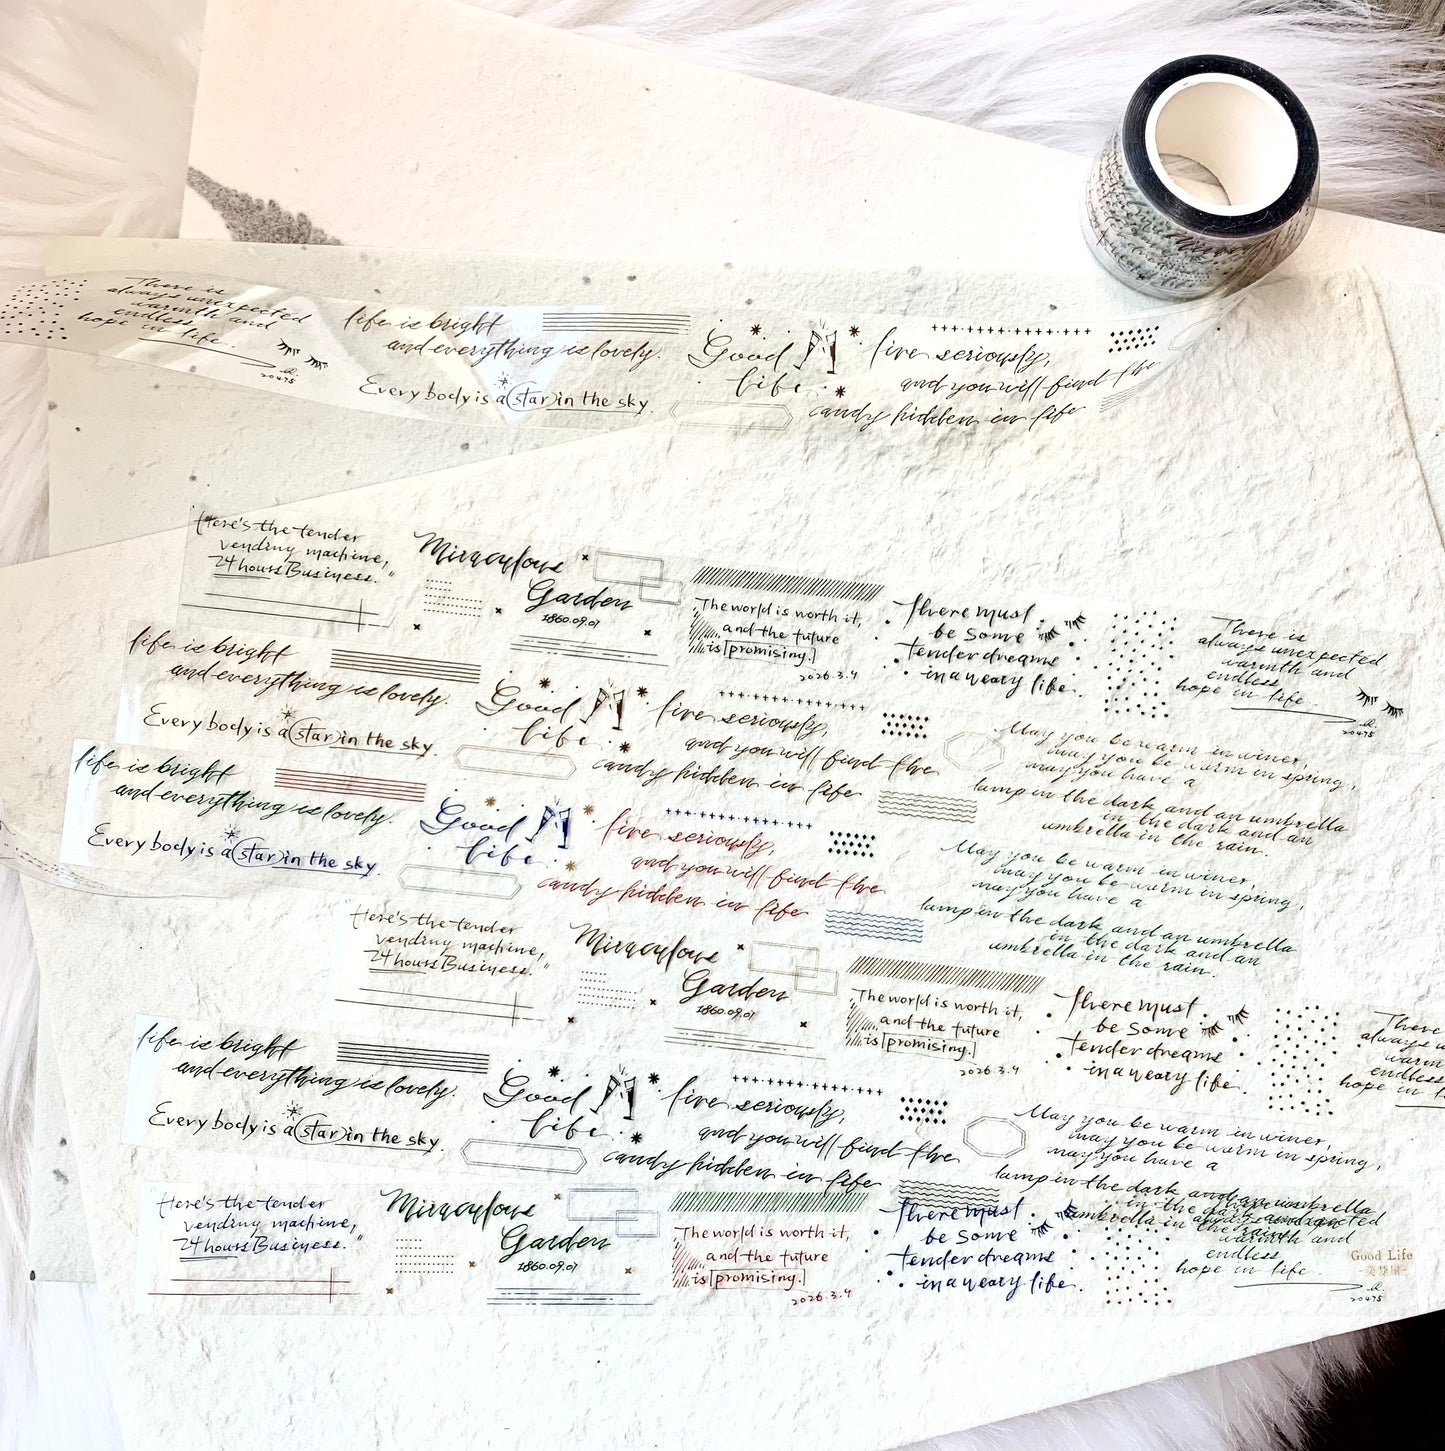 There is
always unexpected
warmth and
endless
hope in life.
20475
life is bright
and everything is lovely.
Every body is a star in the sky.
Good
life
live seriously,
and you will find the
candy hidden in life
Here's the tender
vending machine,
24 hours Business."
Miraculous
Garden
1860.09.01
"The world is worth it,
and the future
is promising.
2026.3.9
There must
be some
tender dreams
in a weary life.
There is
always unexpected
warmth and
endless
hope in life.
20475
life is bright
and everything is lovely.
Every body is a star in the sky.
Good
life
live seriously,
and you will find the
candy hidden in life
May you be warm in winer,
may you be warm in spring,
may you have a
lamp in the dark and an umbrella
in the dark and an
umbrella in the rain.
life is bright
and everything is lovely.
Every body is a star in the sky.
Good
life
live seriously,
and you will find the
candy hidden in life
May you be warm in winer,
may you be warm in spring,
may you have a
lamp in the dark and an umbrella
in the dark and an
umbrella in the rain.
Here's the tender
vending machine,
24 hours Business."
Miraculous
Garden
1860.09.01
"The world is worth it,
and the future
is promising.
2026.3.9
There must
be some
tender dreams
in a weary life.
There
always u
warm
endless
hope in
life is bright
and everything is lovely.
Every body is a star in the sky.
Good
life
live seriously,
and you will find the
candy hidden in life
May you be warm in winer,
may you be warm in spring,
may you have a
lamp in the dark and an umbrella
in the dark and an
umbrella in the
Here's the tender
vending machine,
24 hours Business."
Miraculous
Garden
1860.09.01
"The world is worth it,
and the future
is promising.
2026.3.9
There must
be some
tender dreams
in a weary life.
warmth and
endless
hope in life.
20475
Good Life